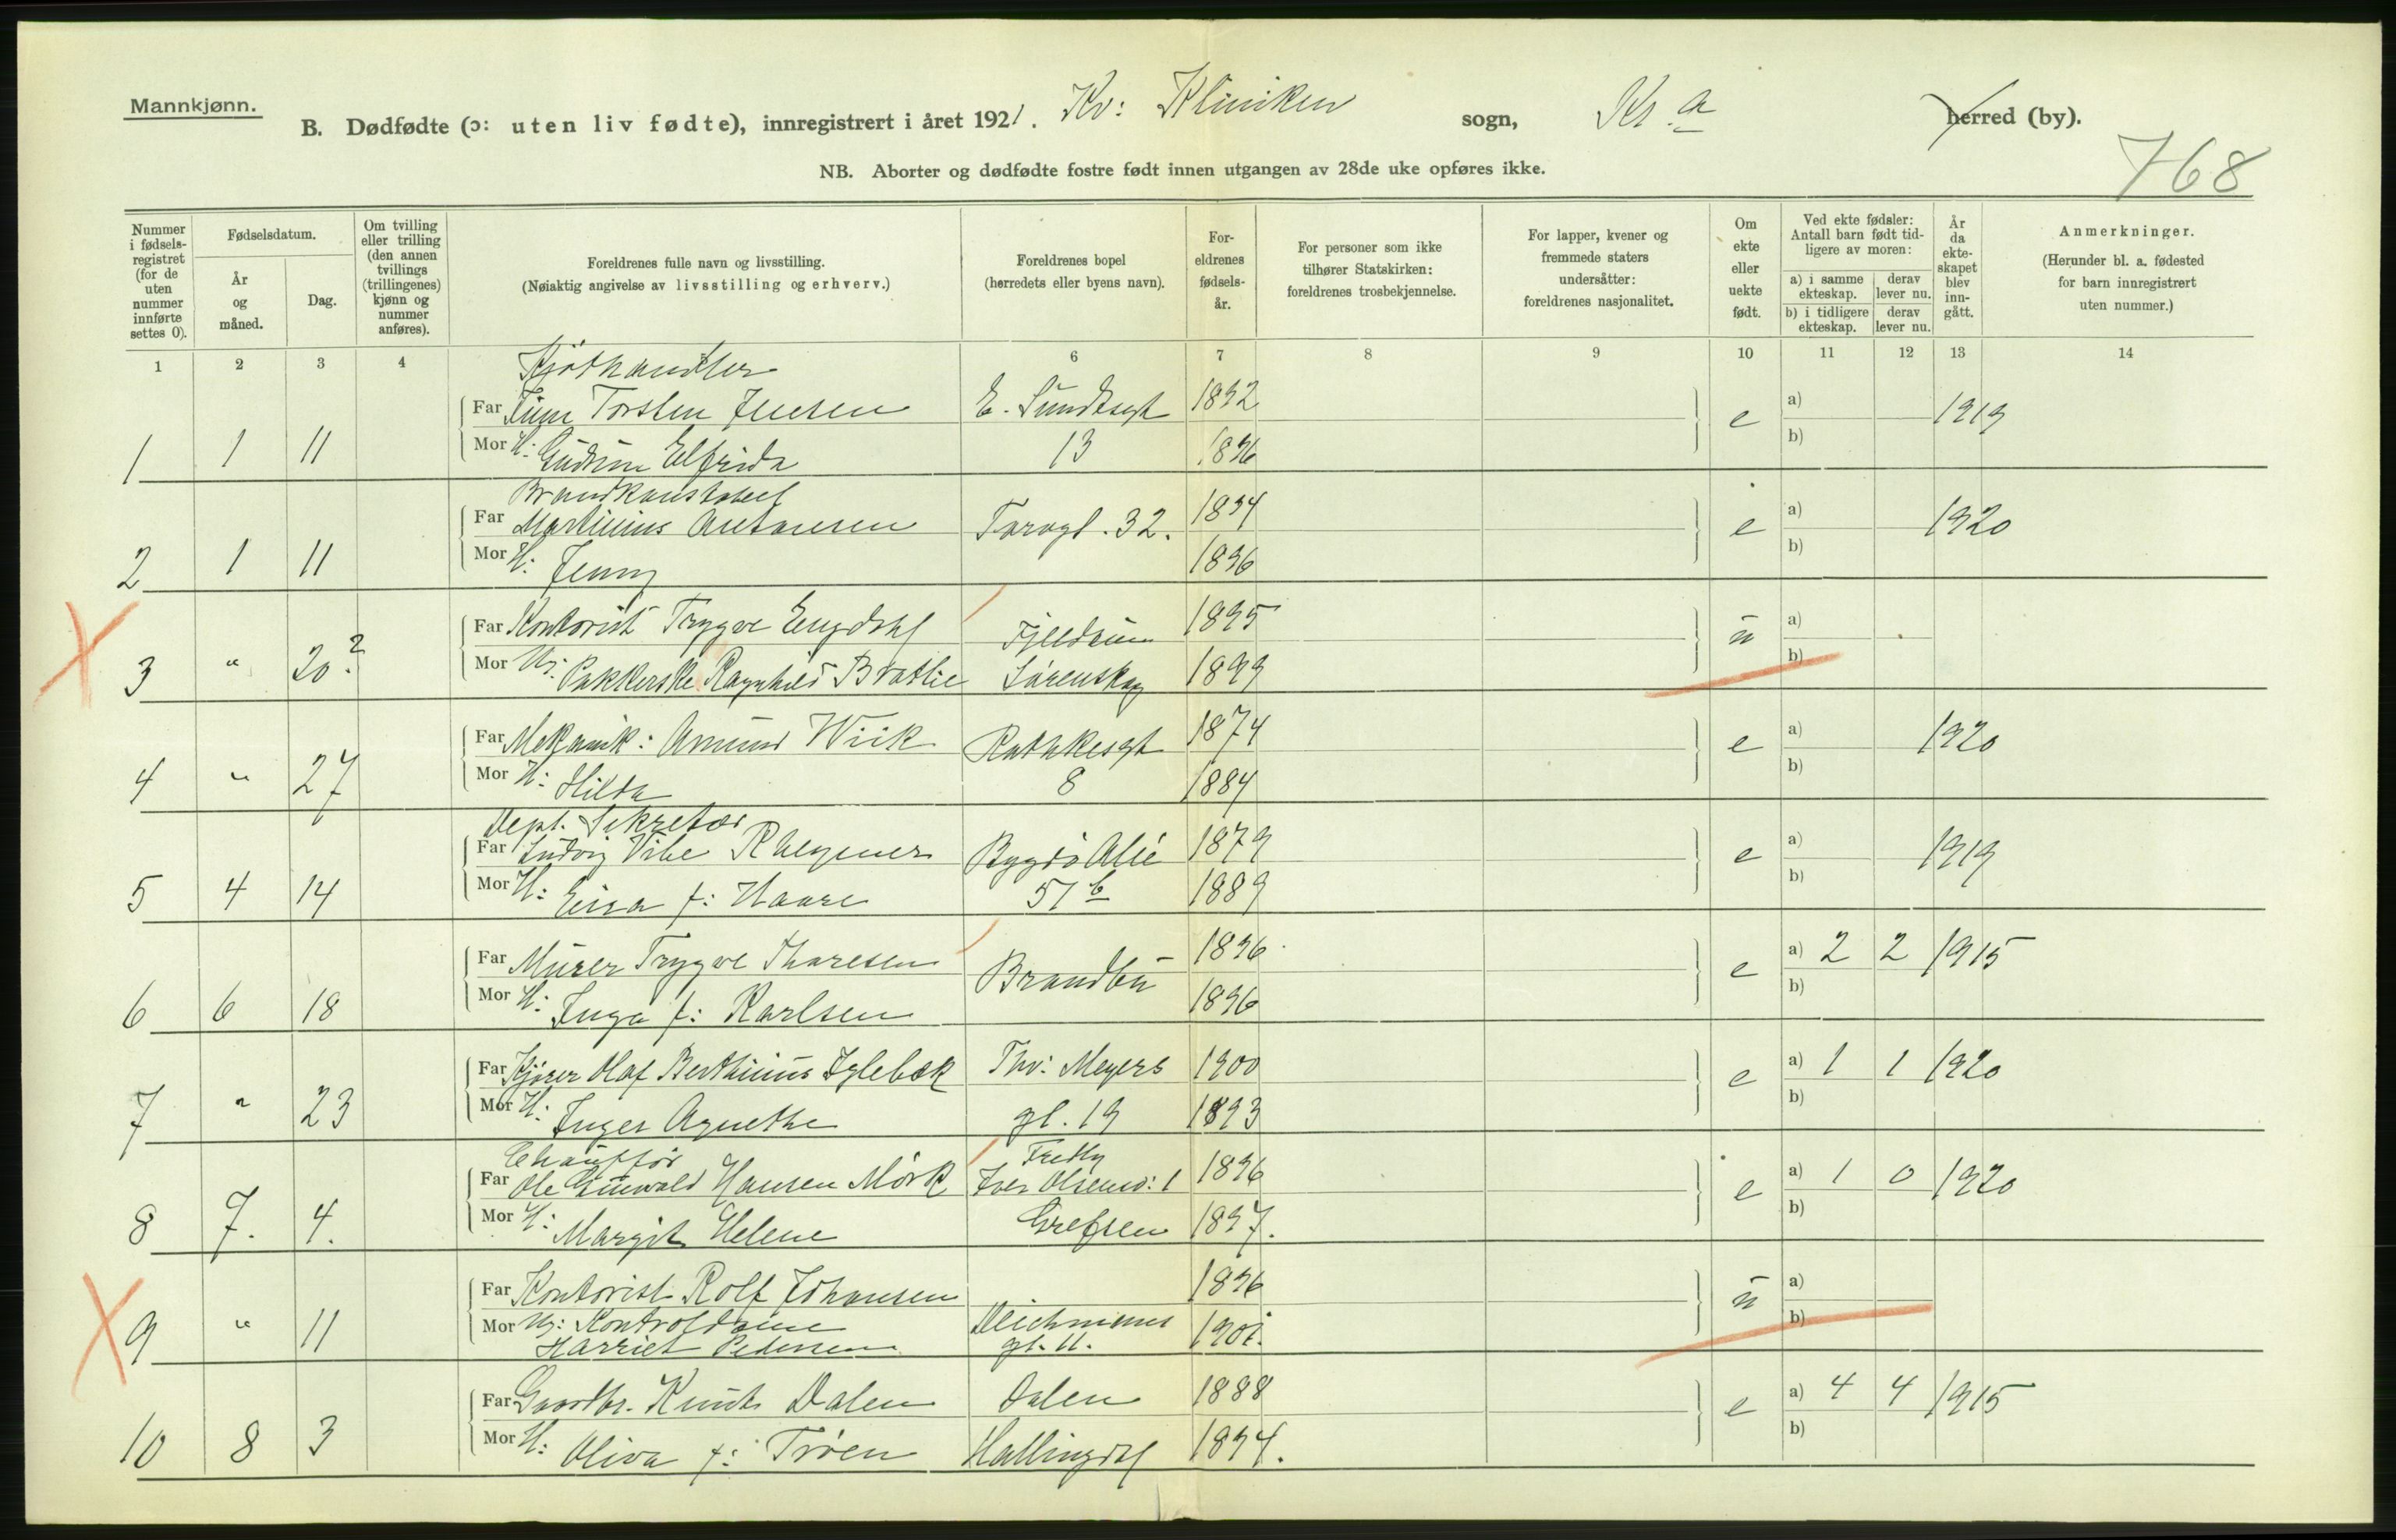 Mannkjønn.
B. Dødfødte (ɔ: uten liv fødte), innregistrert i året 1921. Kv: Kliniken sogn, Kr.a herred (by).
768
NB. Aborter og dødfødte fostre født innen utgangen av 28de uke opføres ikke.
Nummer i fødselsregistret (for de uten nummer innførte settes 0).
Fødselsdatum.
År og måned.
Dag.
Om tvilling eller trilling (den annen tvillings (trillingenes) kjønn og nummer anføres).
Foreldrenes fulle navn og livsstilling.
(Nøiaktig angivelse av livsstilling og erhverv.)
Foreldrenes bopel
(herredets eller byens navn).
Foreldrenes fødselsår.
For personer som ikke tilhører Statskirken: foreldrenes trosbekjennelse.
For lapper, kvener og fremmede staters undersåtter: foreldrenes nasjonalitet.
Om ekte eller uekte født.
Ved ekte fødsler: Antall barn født tidligere av moren:
a) i samme ekteskap. derav lever nu.
b) i tidligere ekteskap. derav lever nu.
År da ekteskapet blev inngått.
Anmerkninger.
(Herunder bl. a. fødested for barn innregistrert uten nummer.)
1 2 3 4 6 7 8 9 10 11 12 13 14
Kjøthandler
Far Torsten Jensen E. Sundtsgt 1892 e a) 1919
1 1 11 Mor H: Gudrun Elfrida 13 1896 b)
Brandkonstabel
Far Martinius Antonsen Torvgt. 32. 1894 e a) 1920
2 1 11 Mor H: Jenny 1896 b)
Far Kontorist Trygve Engdahl Fjelldrum 1895 u a)
3 " 20? Mor Ug: Pakkerske Ragnhild Bratlie Sørenskog 1899 b)
Far Mekanik: Amund Wiik Rathkesgt 1874 e a) 1920
4 " 27 Mor H: Hilda 8 1884 b)
Dept. Sekretær
Far Ludvig Vibe Bygdø Allé 1879 e a) 1919
5 4 14 Mor H: f: Haare 57 b 1889 b)
Far Murer Trygve Thoresen Brandbu 1896 e a) 2 2 1915
6 6 18 Mor H: Inga f: Karlsen 1896 b)
Far Kjører Olaf Berthinius Iglebæk Thv: Meyers 1900 e a) 1 1 1920
7 " 23 Mor H: Inger Agnethe gt. 19 1893 b)
Chauffør
Far Ole Grunwald Hansen Mörk Iver Olsensv: 1 1896 e a) 1 0 1920
8 7. 4. Mor H: Margit Helene Grefsen 1897. b)
Far Kontorist Rolf Johansen 1896 u a)
9 " 11 Mor Ug: Kontroldame Deichmans 1901. b)
Harriet Pedersen gt. 11.
Far Gaardbr. Knut Dalen Aalen 1888 e a) 4 4 1915
10 8 3 Mor H: Oliva f: Trøen Hallingdal 1894. b)